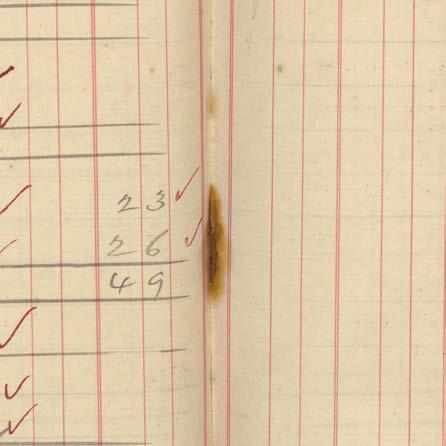 23 ✓
26 ✓
49